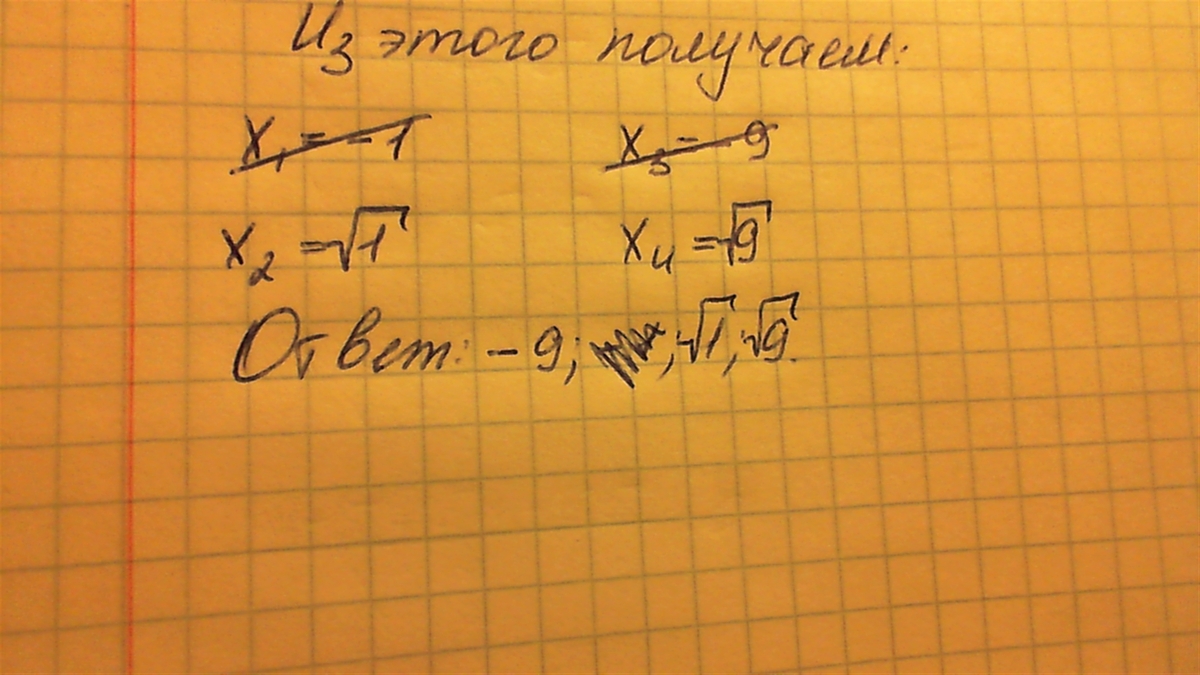 Из этого получаем:
x₁ = -1 x₃ = -9
x₂ = √1 x₄ = √9
Ответ: -9; ; √1; √9.